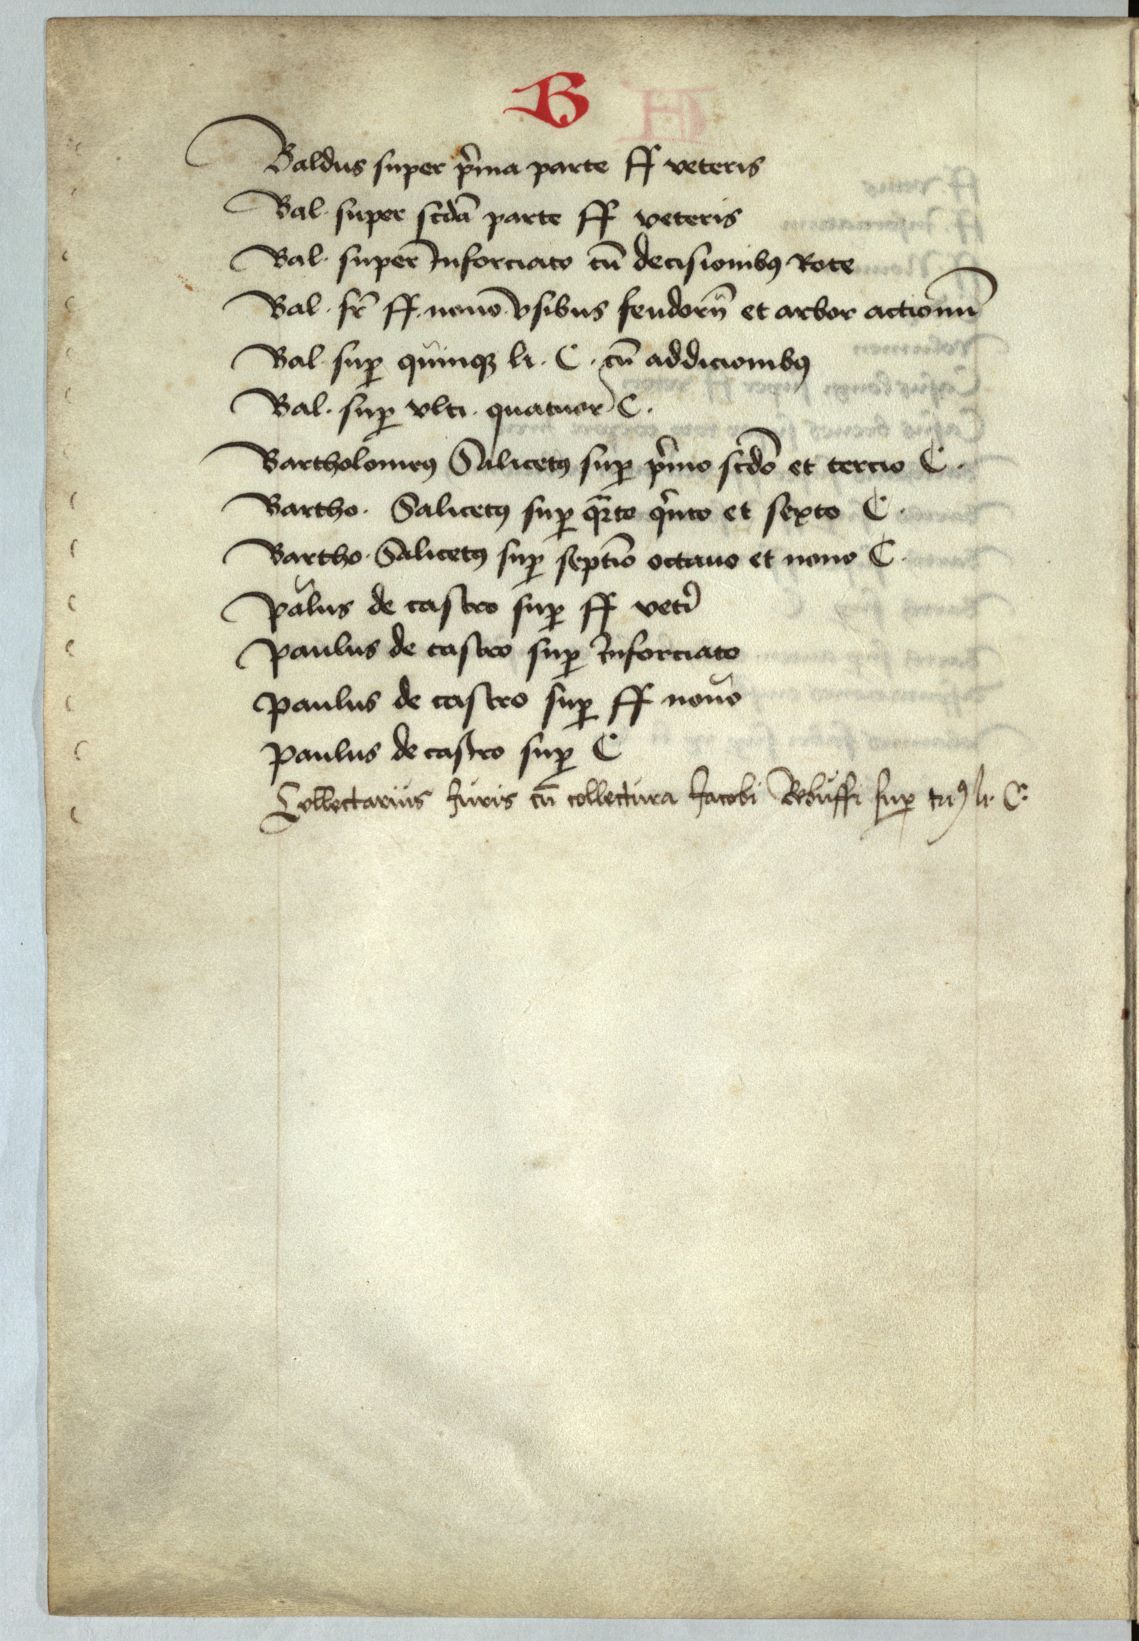 B
Baldus super p̄ma parte ff veteris
Bal. super scd̄a parte ff veteris
Bal. super Inforciato cū decisionibꝫ Rote
Bal. sr̄ ff. nouo vsibus feudorū et arbor actionū
Bal. suꝑ quinqꝫ li. C. cū addicionibꝫ
Bal. suꝑ vlti. quatuor C.
Bartholomeꝰ Salicetꝰ suꝑ p̄mo scdō et tercio C.
Bartho. Salicetꝰ suꝑ qr̄to qⁱnto et sexto C.
Bartho. Salicetꝰ suꝑ septīo octauo et nono C.
paulus de castro suꝑ ff vetī
paulus de castro suꝑ Inforciato
paulus de castro suꝑ ff nouo
paulus de castro suꝑ C
Collectarius Juris cū collectura Jacobi Rebuffi suꝑ li. C.